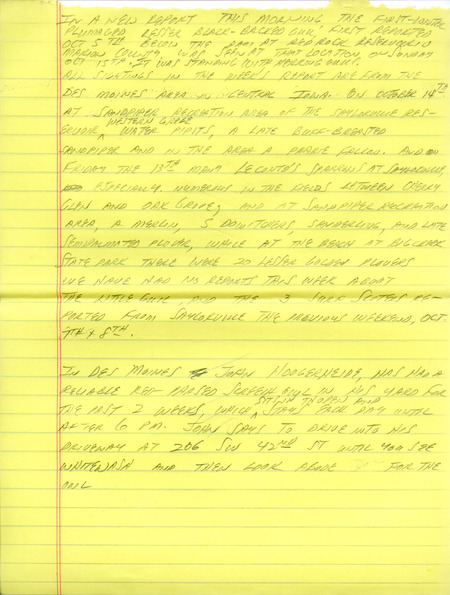 IN A NEW REPORT THIS MORNING THE FIRST-WINTER
PLUMAGED LESSER BLACK-BACKED GULL, FIRST REPORTED
OCT 5TH BELOW THE DAM AT RED ROCK RESERVOIR IN
MARION COUNTY WAS SEEN AT THAT LOCATION, ON SUNDAY
OCT 15TH. IT WAS STANDING WITH HERRING GULLS.
ALL SIGHTINGS IN THE WEEK'S REPORT ARE FROM THE
DES MOINES AREA IN CENTRAL IOWA. ON OCTOBER 14TH
AT SANDPIPER RECREATION AREA OF THE SAYLORVILLE RES-
WESTERN GREBE
ERVOIR, WATER PIPITS, A LATE BUFF-BREASTED
SANDPIPER AND IN THE AREA A PRARIE FALCON. AND ON
FRIDAY THE 13TH MANY LECONTE'S SPARROWS AT SAYLORVILLE,
ESPECIALLY NUMEROUS IN THE FIELDS BETWEEN CHERRY
GLEN AND OAK GROVE; AND AT SANDPIPER RECREATION
AREA, A MERLIN, 5 DOWITCHERS, SANDERLING, AND LATE
SEMIPALMATED PLOVER, WHILE AT THE BEACH AT BIG CREEK
STATE PARK THERE WERE 20 LESSER GOLDEN PLOVERS
WE HAVE HAD NO REPORTS THIS WEEK ABOUT
THE LITTLE GULL, AND THE 3 SURF SCOTERS RE-
PORTED FROM SAYLORVILLE THE PREVIOUS WEEKEND, OCT.
7TH & 8TH.
IN DES MOINES JOHN HOOGERHEIDE, HAS HAD A
RELIABLE RED PHASED SCREECH OWL IN HIS YARD FOR
THE PAST 2 WEEKS, WHICH STAYS EACH DAY UNTIL
AFTER 6 P.M. JOHN SAYS TO DRIVE INTO HIS
DRIVEWAY AT 206 SW 42ND ST UNTIL YOU SEE
WHITEWASH AND THEN LOOK ABOVE FOR THE
OWL